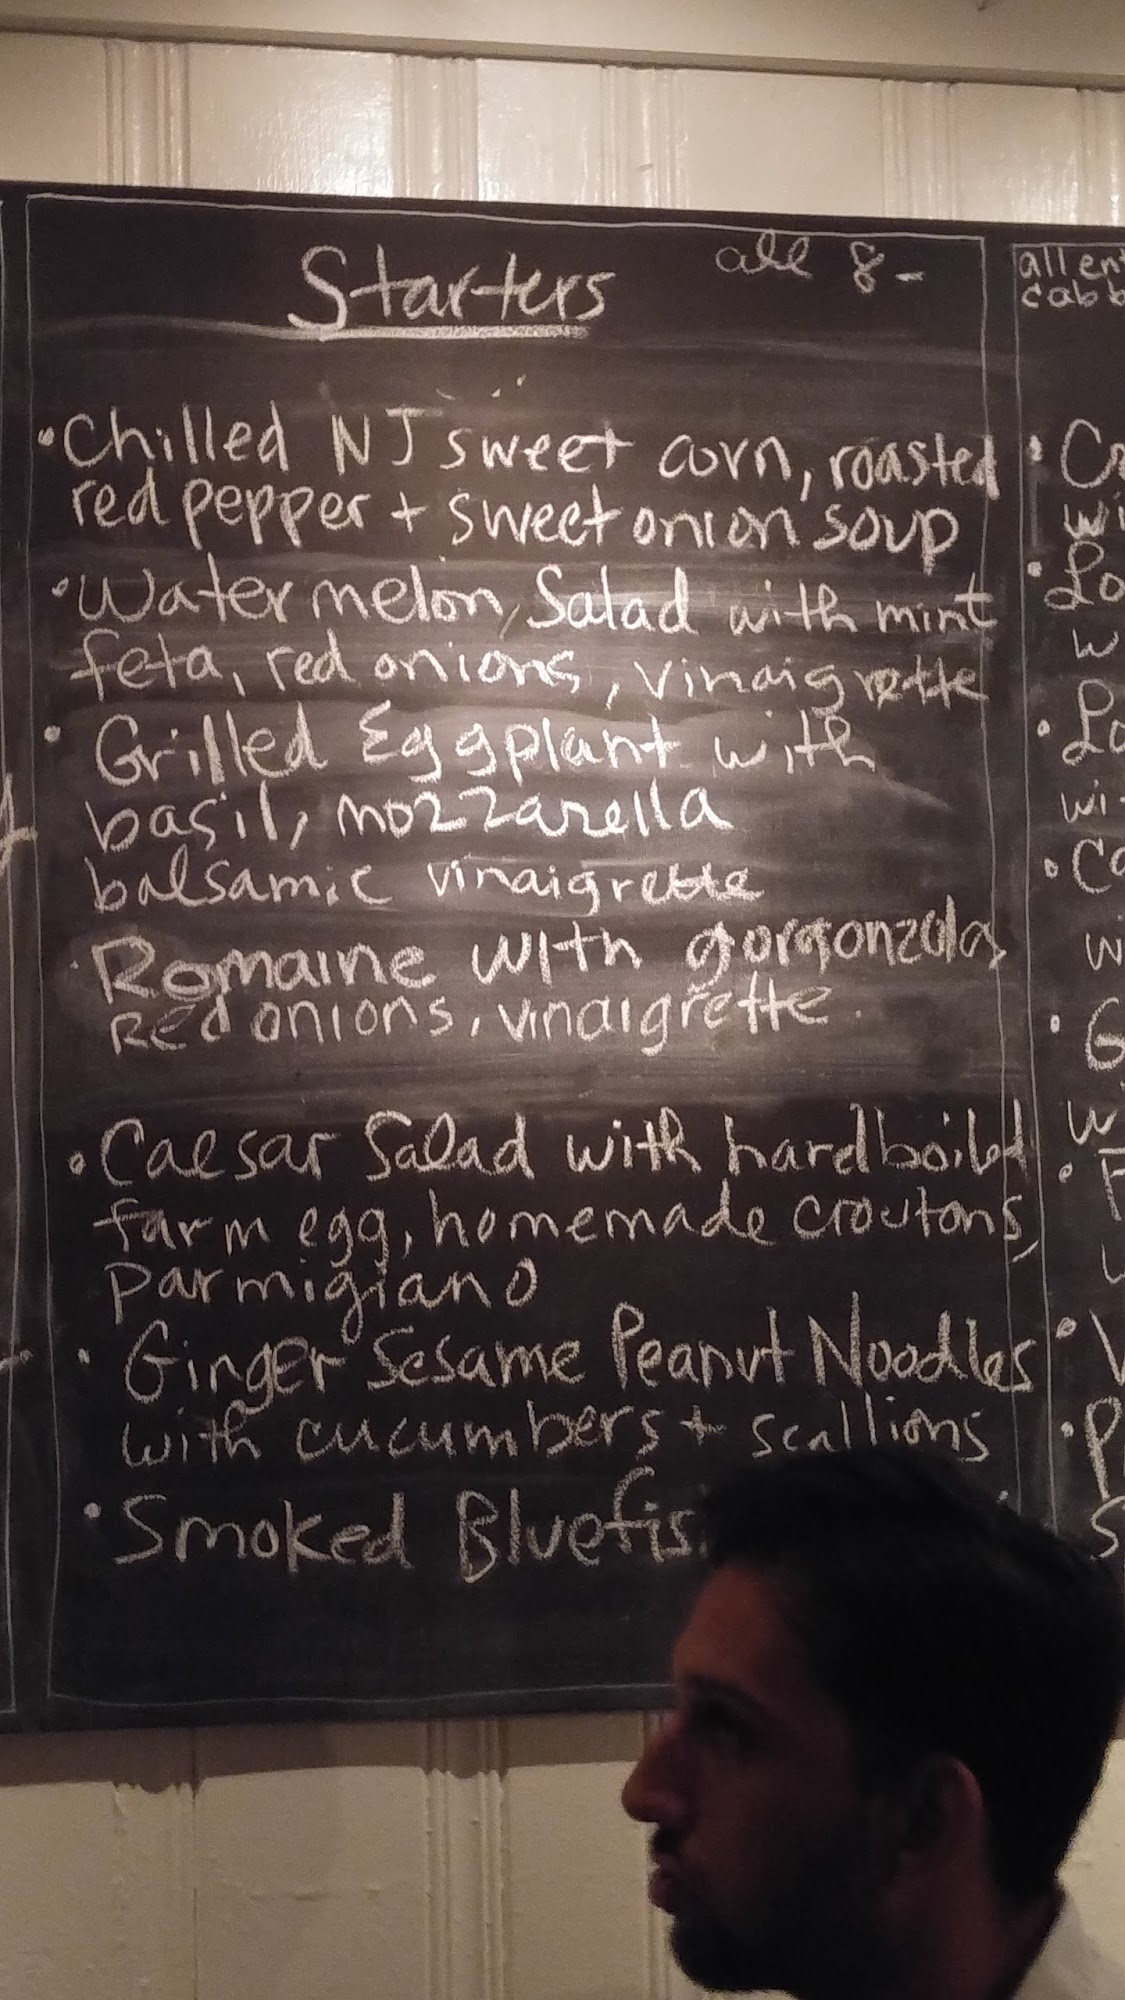 Starters all 8-
• Chilled NJ sweet corn, roasted
red pepper + sweet onion soup
• Watermelon, Salad with mint
feta, red onions, vinaigrette
• Grilled Eggplant with
basil, mozzarella
balsamic vinaigrette
• Romaine with gorgonzola,
Red onions, vinaigrette.
• Caesar Salad with hardboiled
farm egg, homemade croutons,
parmigiano
• Ginger Sesame Peanut Noodles
with cucumbers + scallions
• Smoked Bluefis